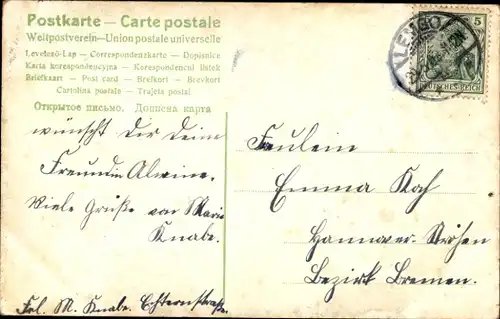 Postkarte — Carte postale
Weltpostverein—Union postale universelle
Levelező-Lap — Correspondenzkarte — Dopisnice
Karta korespondencyjna — Korespondenční lístek
Briefkaart — Post card — Brefkort — Brevkort
Cartolina postale — Trajeta postal
Открытое письмо. Дописна карта
wünscht Dir Deine
Freundin Alwine.
Viele Grüße von Marie
Knabe.
Frl. M. Knabe. Echternstraße.
5
LEMGO
DEUTSCHES REICH
Feulein
Emma Koch
Hannover-Ströhen
Bezirk Bremen.